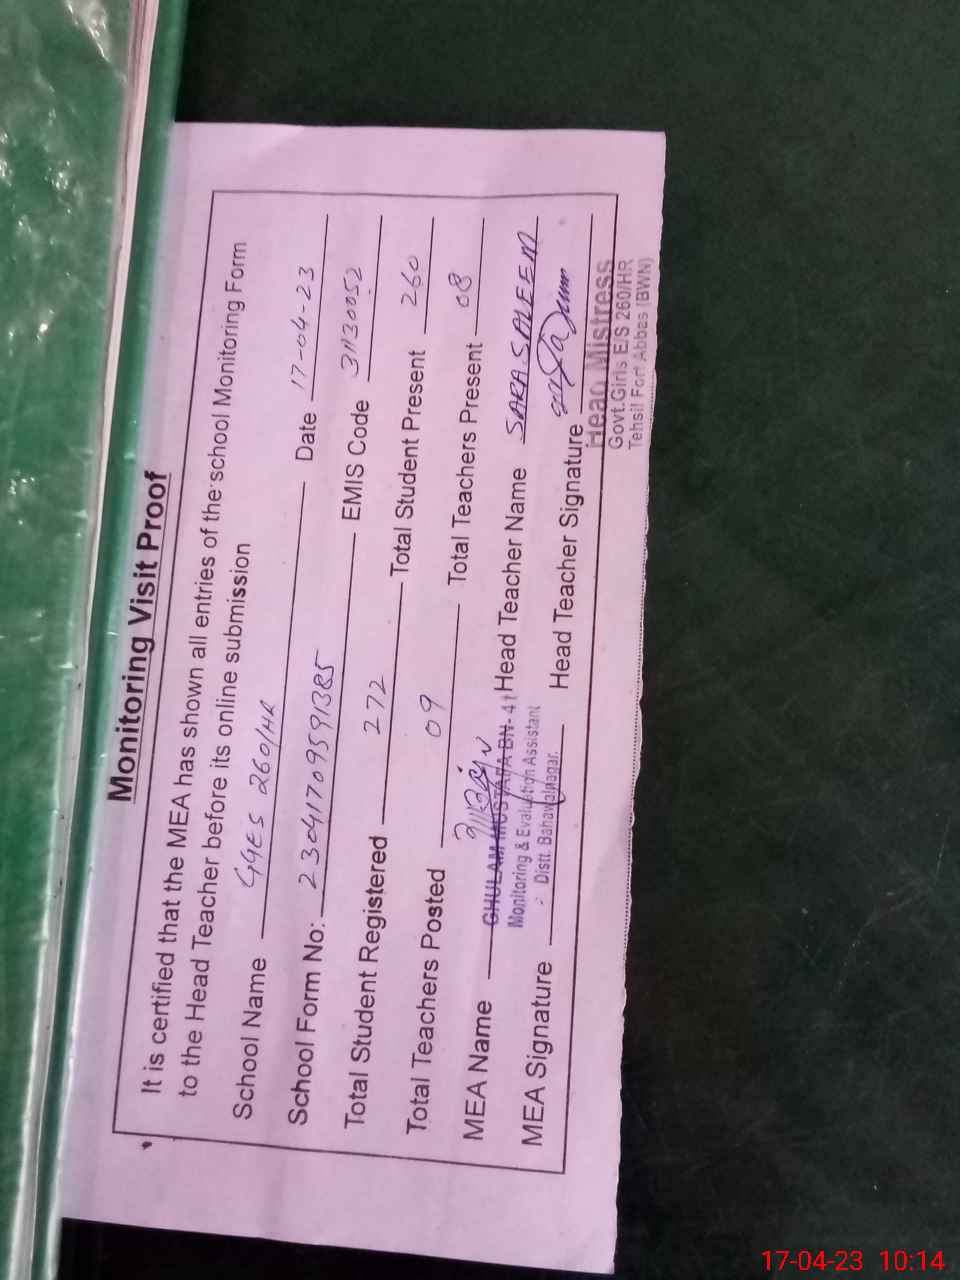 Monitoring Visit Proof
It is certified that the MEA has shown all entries of the school Monitoring Form
to the Head Teacher before its online submission
School Name GGES 260/HR Date 17-04-23
School Form No: 23041709591385 EMIS Code 31130052
Total Student Registered 272 Total Student Present 260
Total Teachers Posted 09 Total Teachers Present 08
MEA Name GHULAM MUSTAFA BN- 41 Head Teacher Name SARA SALEEM
Monitoring & Evaluation Assistant
Distt. Bahawalnagar.
MEA Signature Head Teacher Signature
Head Mistress
Govt.Girls E/S 260/HR
Tehsil Fort Abbas (BWN)
17-04-23 10:14